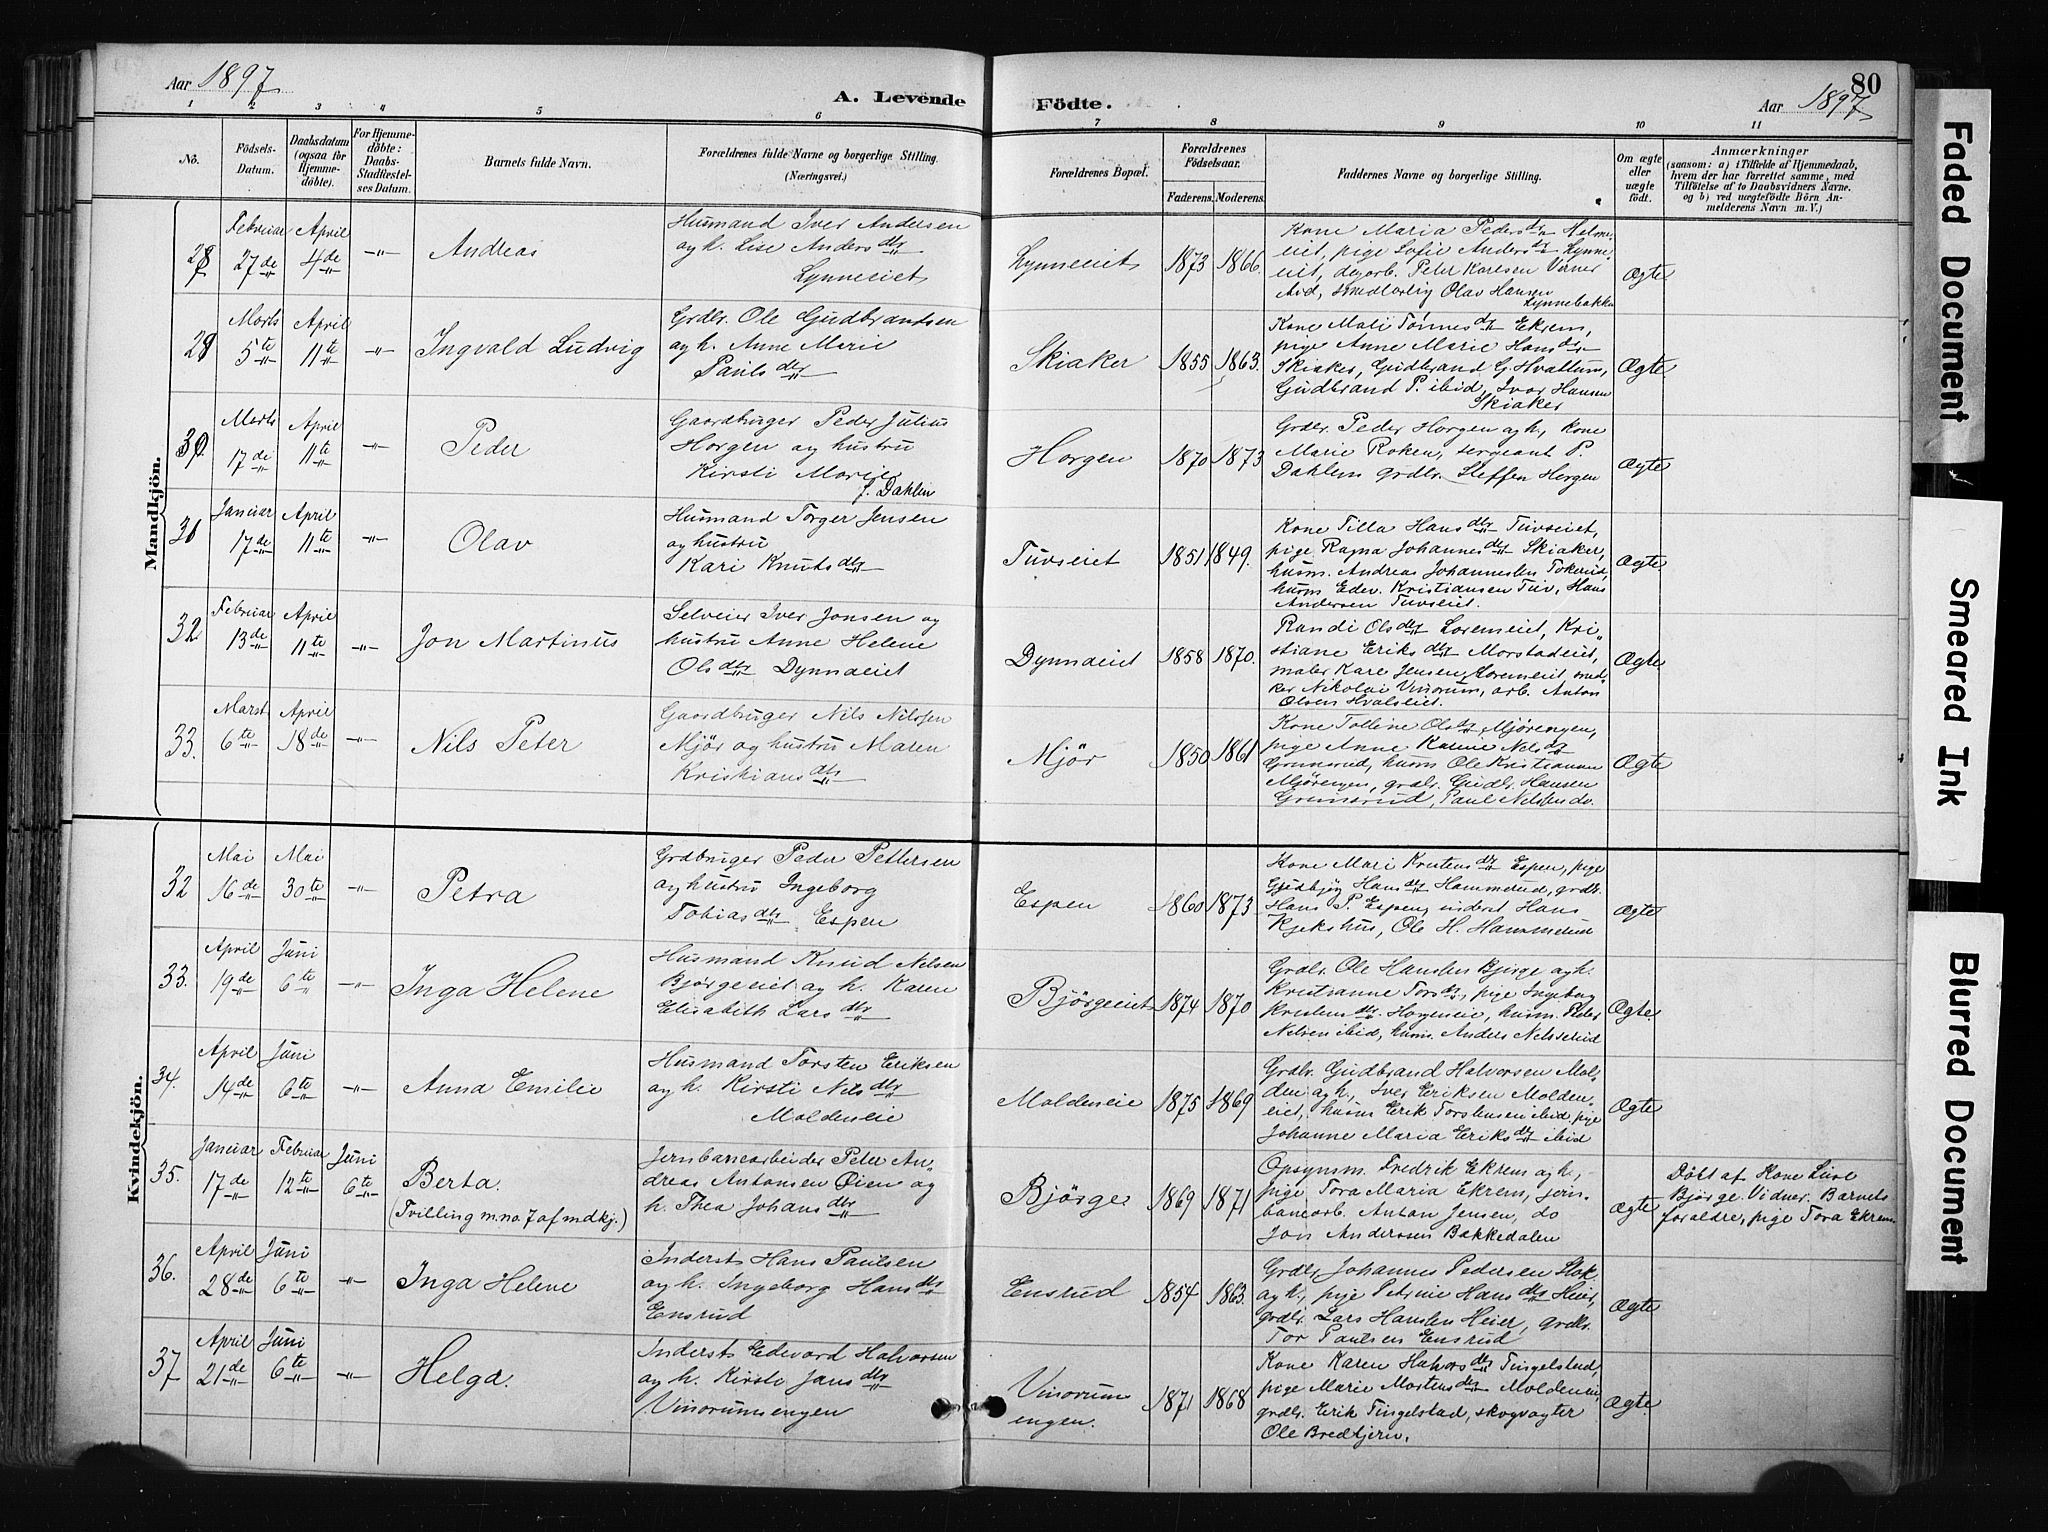 Aar 1897
A. Levende Födte.
80
Aar 1897
1 2 3 4 5 6 7 8 9 10 11
No.
Födsels-
Datum.
Daabsdatum
(ogsaa for
Hjemme-
döbte).
For Hjemme-
döbte:
Daabs-
Stadfæstel-
ses Datum.
Barnets fulde Navn.
Forældrenes fulde Navne og borgerlige Stilling.
(Næringsvei.)
Forældrenes Bopæl.
Forældrenes
Födselsaar.
Faderens. Moderens.
Faddernes Navne og borgerlige Stilling.
Om ægte
eller
uægte
født.
Anmærkninger
(saasom: a) i Tilfælde af Hjemmedaab,
hvem der har forrettet samme, med
Tilföielse af to Daabsvidners Navne.
og b) ved uægtefödte Börn An-
melderens Navn m. V.)
Mandkjön.
28
Februar
27de
April
4de
Andreas
Husmand Iver Andersen
og h. Lise Andersdtr
Lynneeiet
Lynneeiet
1873 1866
Kone Maria Pedersdtr
eiet, pige Sofie Andersdtr Lynne-
eiet, Peter Karlsen
Olav Hansen
Lynnebakken
Ægte
29
Marts
5te
April
11te
Ingvald Ludvig
Grdbr. Ole Gudbrandsen
og h. Anne Marie
Paulsdtr
Skiaker
1855 1863.
Kone Mali Tønnesdtr Ekrem,
pige Anne Marie Hansdtr
Skiaker, Gudbrand G. Hvattum,
Gudbrand P. ibid, Iver Hansen
Skiaker
Ægte
30.
Marts
17de
April
11te
Peder
Gaardbruger Peder Julius
Horgen og hustru
Kirsti Marie
f. Dahlen
Horgen
1870 1873
Grdbr. Peder Horgen og h., Kone
Marie Roken, sergeant P.
Dahlen, grdbr. Steffen Horgen
Ægte
31
Januar
17de
April
11te
Olav
Husmand Torger Jensen
og hustru
Kari Knutsdtr
Tuvseiet
1851 1849.
Kone Tilla Hansdtr Tuvseiet,
pige Ragna Johannesdtr Skiaker,
husm. Andreas Johannesen Tokerud,
husm. Edv. Kristiansen Tuv, Hans
Andersen Tuvseiet.
Ægte
32
Februar
13de
April
11te
Jon Martinus
Selveier Iver Jonsen og
hustru Anne Helene
Olsdtr Dynnaeiet
Dynnaeiet
1858 1870.
Randi Olsdtr Loremeiet, Kri-
stiane Eriksdtr Morstadeiet,
maler Kare Jensen Loremeiet, sned-
ker Nikolai Vinorum, arb. Anton
Olsen Hvalseiet.
Ægte
33.
Marst
6te
April
18de
Nils Peter
Gaardbruger Nils Nilssen
Mjør og hustru Maren
Kristiansdtr
Mjør
1850 1861
Kone Tolline Olsdtr Mjørengen,
pige Anne Karine Nilsdtr
husm Ole Kristiansen
Mjørengen, grdbr. Gudbr. Hansen
Paul Nilssen do.
Ægte
Kvindekjön.
32
Mai
16de
Mai
30te
Petra
Grdbruger Peder Pettersen
og hustru Ingeborg
Tobiasdtr Espen
Espen
1860 1873
Kone Mari Knutsdtr Espen, pige
Gudbjør Hansdtr Hammerud, grdbr.
Hans P. Espen, inderst Hans
Kjekshus, Ole H. Hammerud
Ægte
33.
April
19de
Juni
6te
Inga Helene
Husmand Knud Nelsen
Bjørgeeiet og h. Karen
Elisabeth Larsdtr
Bjørgeeiet
1874 1870
Grdbr. Ole Hanslen Bjørge og h.
Kristianne Torsdtr, pige Ingeborg
Horgeneie, husm. Peter
Nelsen ibid, husm. Anders Nelsserud
Ægte.
34.
April
14de
Juni
6te
Anna Emilie
Husmand Torsten Eriksen
og h. Kirsti Nilsdtr
Moldeneie
Moldeneie
1875 1869
Grdbr. Gudbrand Halvorsen Mol-
den og h., Iver Eriksen Molden-
eiet, husm Erik Torstensen ibid, pige
Johanne Maria Eriksdtr ibid
Ægte
35.
Januar
17de
Februar
12te
Juni
6te
Berta.
(Tvilling m. no. 7 af mdkj.)
Jernbanearbeider Peter An-
dreas Antonsen Øien og
h. Thea Johansdtr
Bjørge
1869 1871
Opsynsm. Fredrik Ekrem og h.,
pige Tora Maria Ekrem, jern-
banearb. Anton Jensen, do
Jon Anderssen Bakkedalen
Ægte
Døbt af Kone Lise
Bjørge. Vidner. Barnets
foraldre, pige Tora Ekrem
36.
April
28de
Juni
6te
Inga Helene
Inderst Hans Paulsen
og h. Ingeborg Hansdtr
Ensrud
Ensrud
1854 1863.
Grdbr. Johannes Pedersen Slok
og h., pige Petrine Hansdtr Heier,
grdbr. Lars Hanslen Heier, grdbr.
Tor Paulsen Ensrud
Ægte
37
April
21de
Juni
6te
Helga.
Inderst Edevard Halvorsen
og h. Kirsti Jansdtr
Vinorumsengen
Vinorum
engen.
1871 1868
Kone Karen Halvorsdtr Tingelstad,
pige Marie Mortensdtr Moldeneie,
grdbr. Erik Tingelstad, skogvogter
Ole Bredtjern.
Ægte.
Faded Document
Smeared Ink
Blurred Document